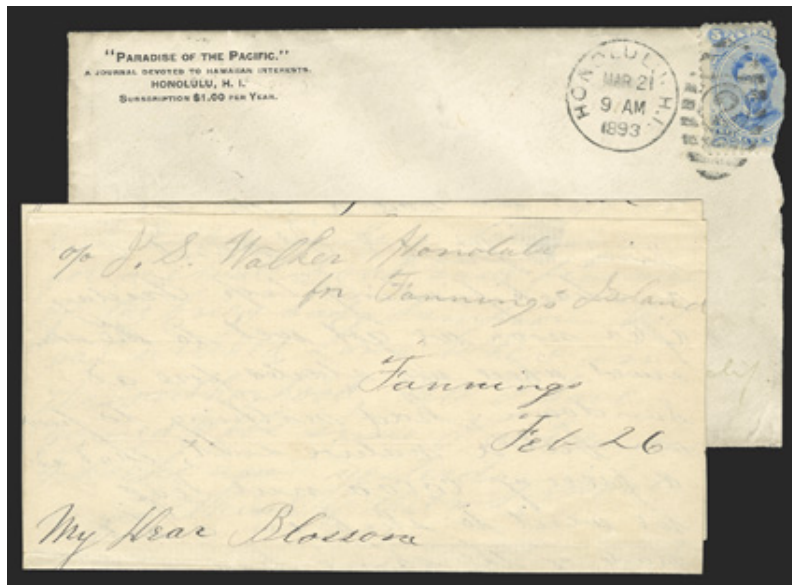 "PARADISE OF THE PACIFIC."
A JOURNAL DEVOTED TO HAWAIIAN INTERESTS.
HONOLULU, H. I.
SUBSCRIPTION $1.00 PER YEAR.
HONOLULU. H.I.
MAR 21
9 AM
1893
c/o J. S. Walker Honolulu
for Fannings Island
Fannings
Feb 26
My Dear Blossom